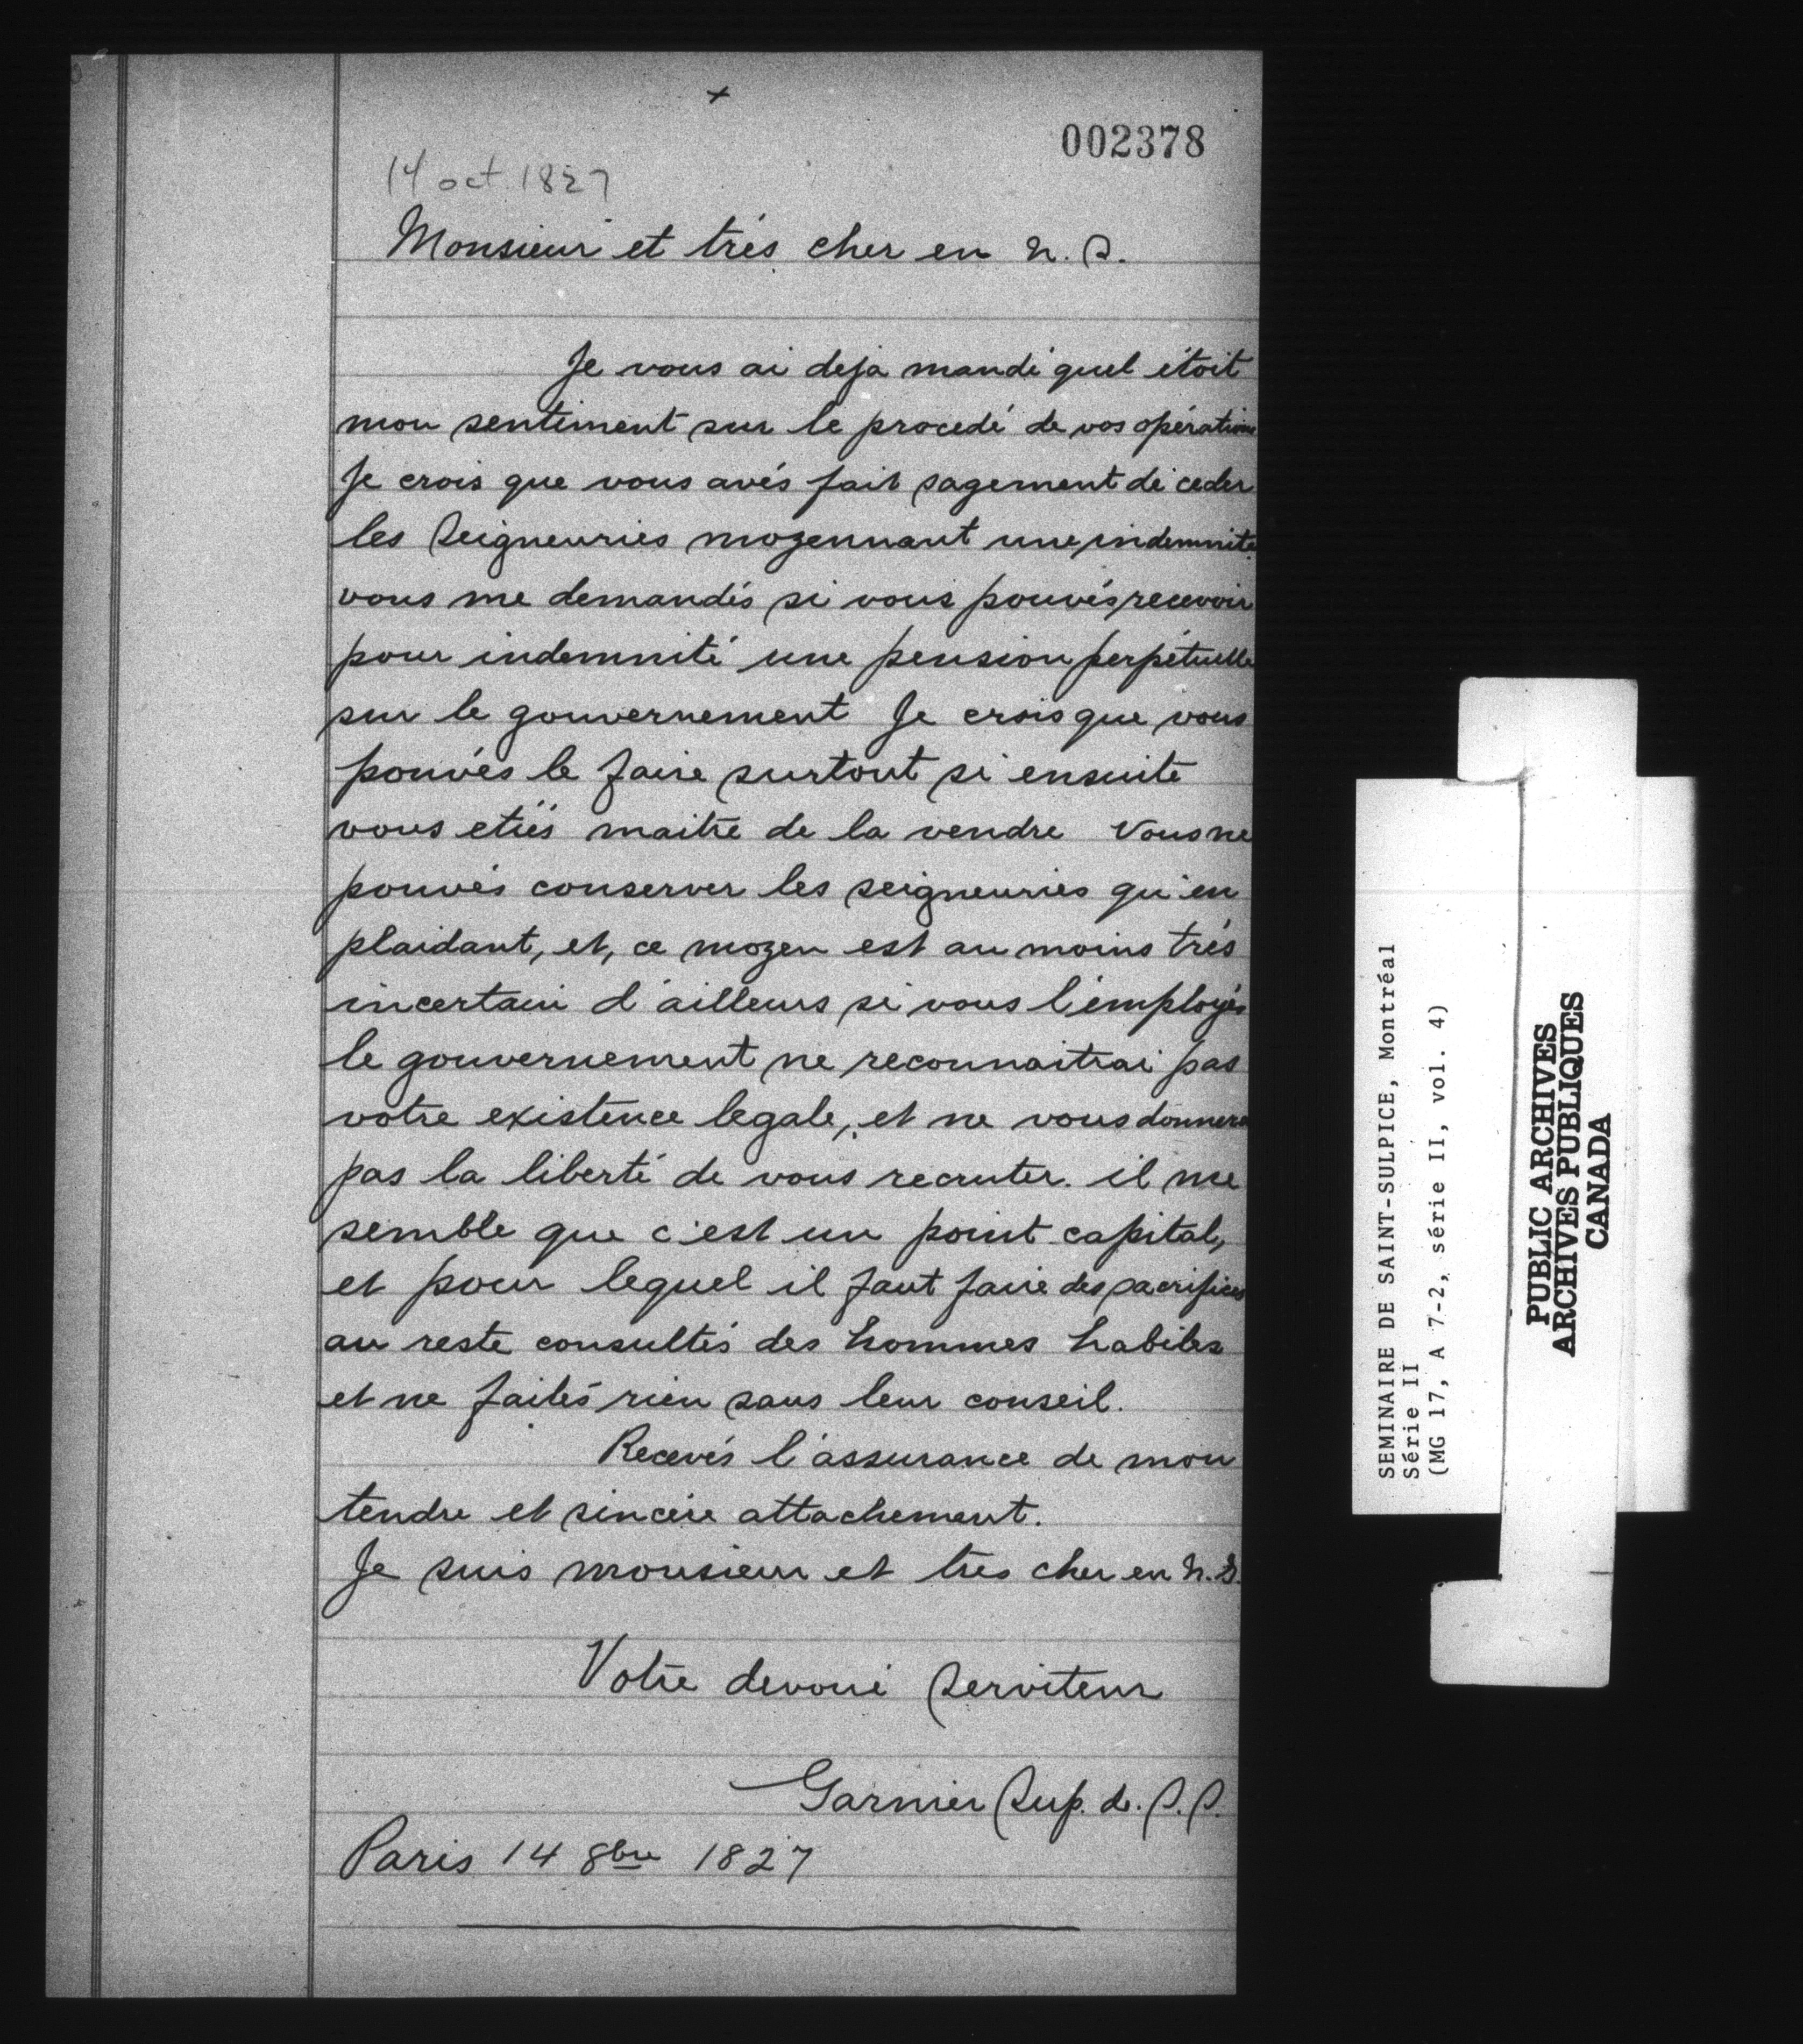 +
002378
14 oct. 1827
Monsieur et très cher en N. S.
Je vous ai deja mandé quel étoit
mon sentiment sur le procedé de vos opérations
Je crois que vous avés fait sagement de ceder
les Seigneuries moyennant une indemnité.
vous me demandés si vous pouvés recevoir
pour indemnité une pension perpétuelle
sur le gouvernement Je crois que vous
pouvés le faire surtout si ensuite
vous etiés maitre de la vendre Vous ne
pouvés conserver les seigneuries qu'en
plaidant, et, ce moyen est au moins très
incertain d'ailleurs si vous l'employés
le gouvernement ne reconnaitrai pas
votre existence legale, et ne vous donnera
pas la liberté de vous recruter. il me
semble que c'est un point capital,
et pour lequel il faut faire des sacrifices
au reste consultés des hommes habiles
et ne faites rien sans leur conseil.
Recevés l'assurance de mon
tendre et sincère attachement.
Je suis monsieur et très cher en N. S.
Votre devoué Serviteur
Garnier Sup. d. S. S.
Paris 14 8bre 1827
SEMINAIRE DE SAINT-SULPICE, Montréal
Série II
(MG 17, A 7-2, série II, vol. 4)
PUBLIC ARCHIVES
ARCHIVES PUBLIQUES
CANADA